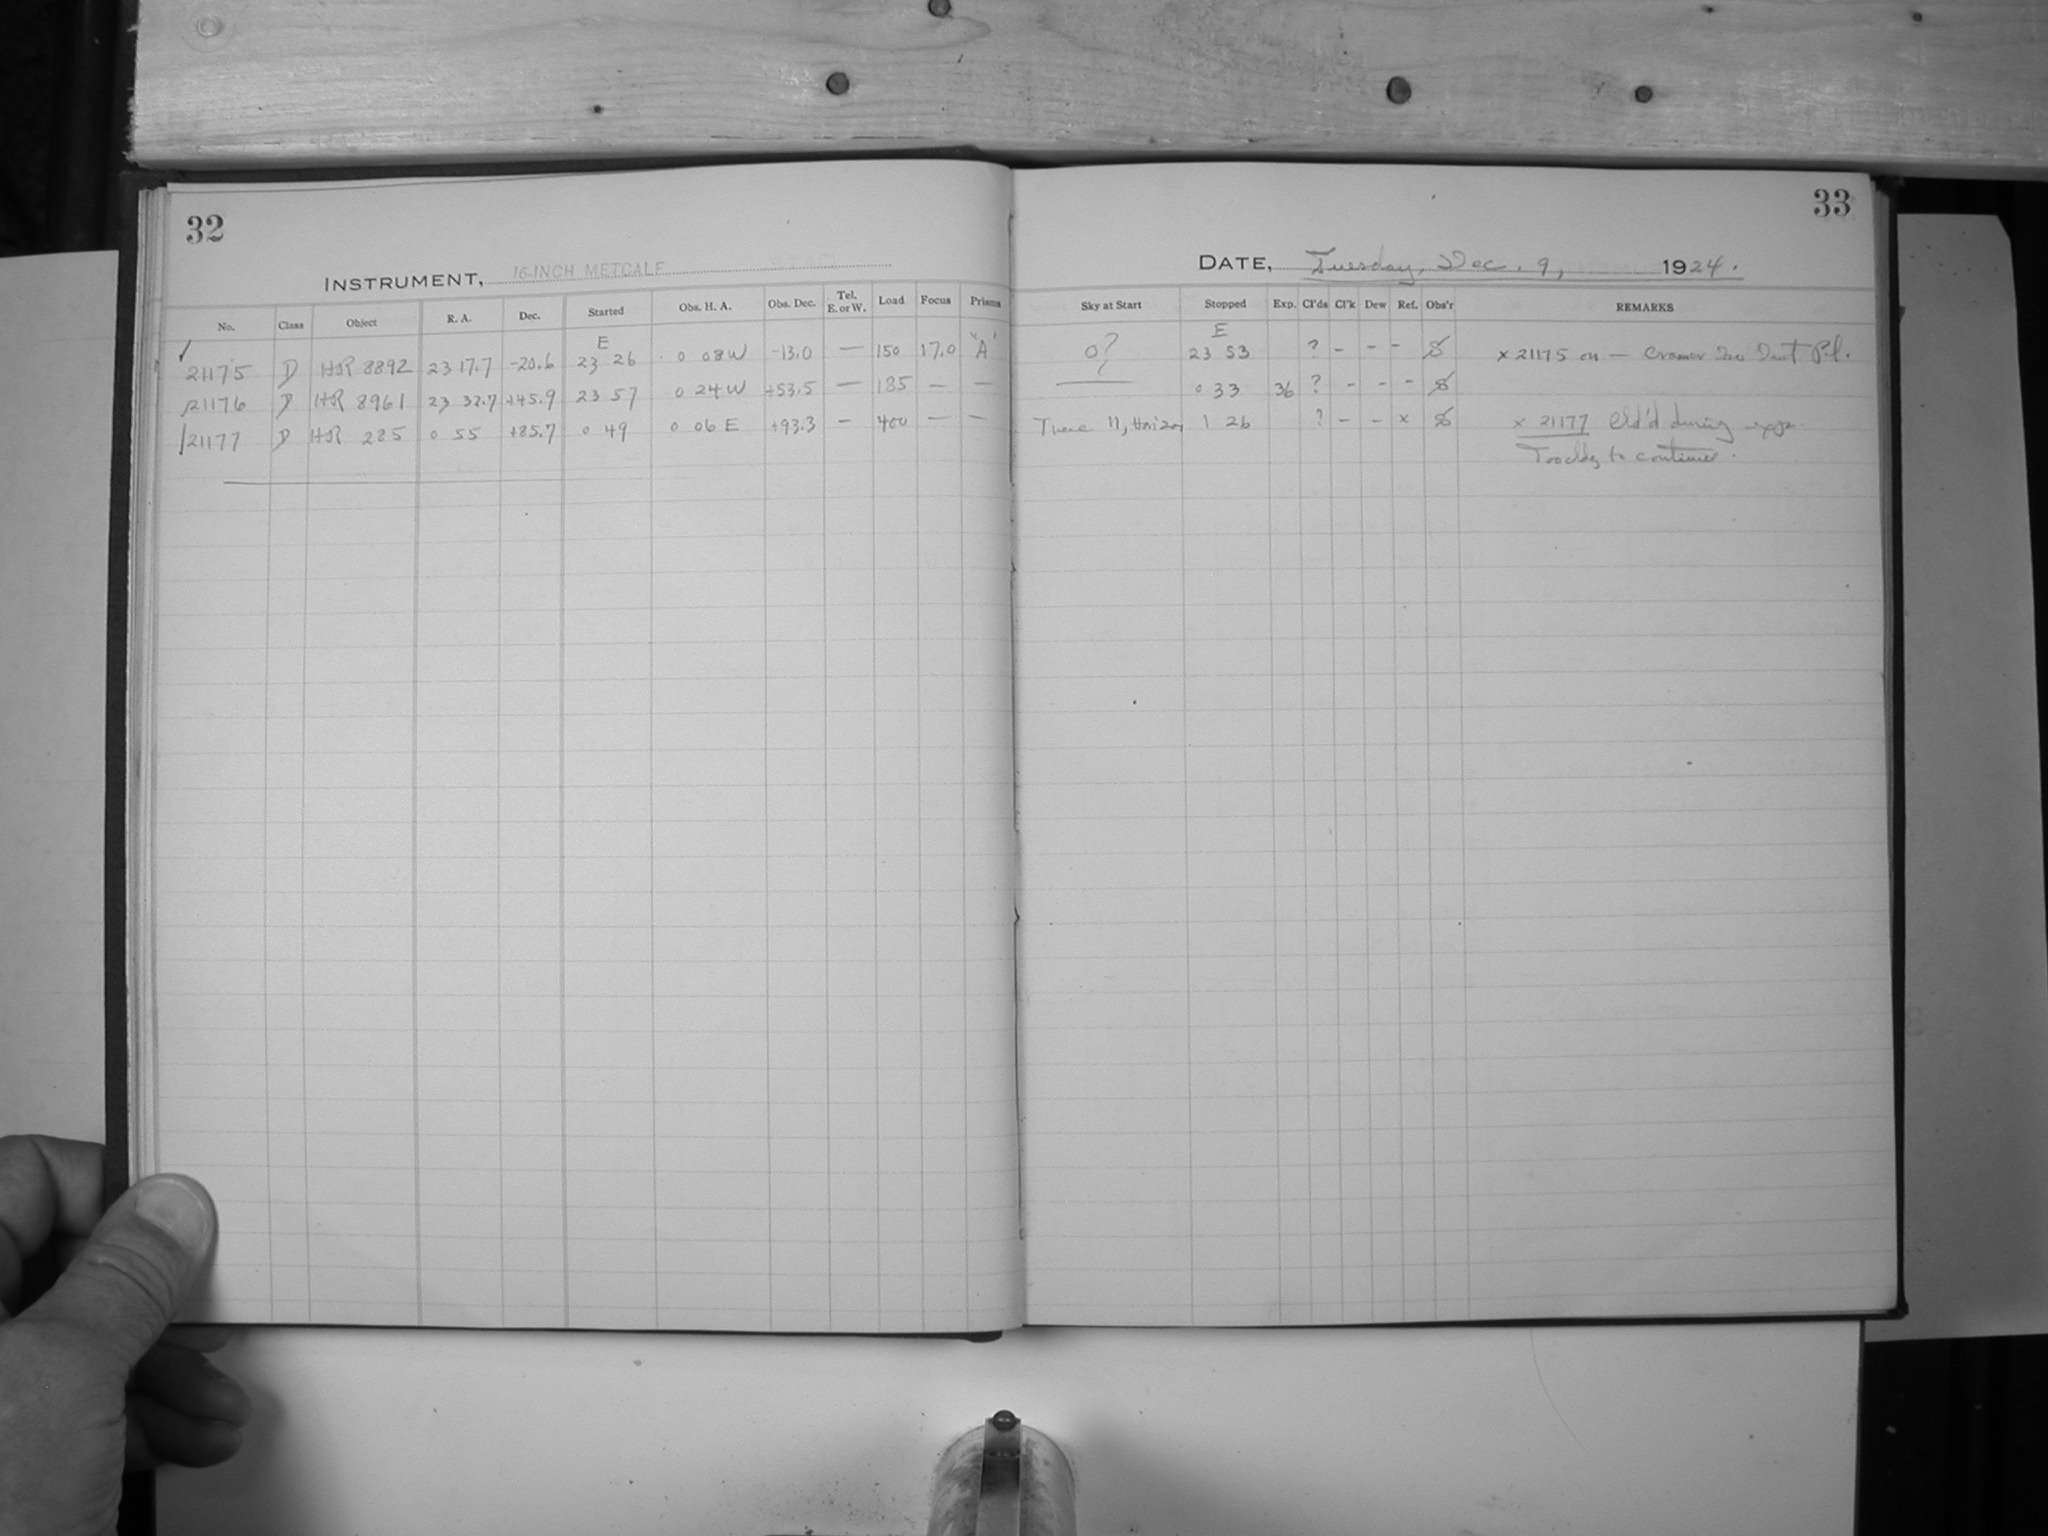 32
INSTRUMENT, 16-INCH METCALF
No. Class Object R. A. Dec. Started Obs. H. A. Obs. Dec. Tel. E. or W. Load Focus Prisms
E
21175 D HR 8892 23 17.7 -20.6 23 26 0 08 W -13.0 — 150 17.0 "A"
21176 D HR 8961 23 32.7 +45.9 23 57 0 24 W +53.5 — 185 — —
21177 D HR 285 0 55 +85.7 0 49 0 06 E +93.3 — 400 — —
33
DATE, Tuesday, Dec. 9, 1924.
Sky at Start Stopped Exp. Cl'ds Cl'k Dew Ref. Obs'r REMARKS
E
0? 23 53 ? - - - x 21175 on — Cramer Pl.
— 0 33 36 ? - - -
11, Horizon 1 26 ? - - x x 21177 Cld'd during exp.
Too cldy to continue.